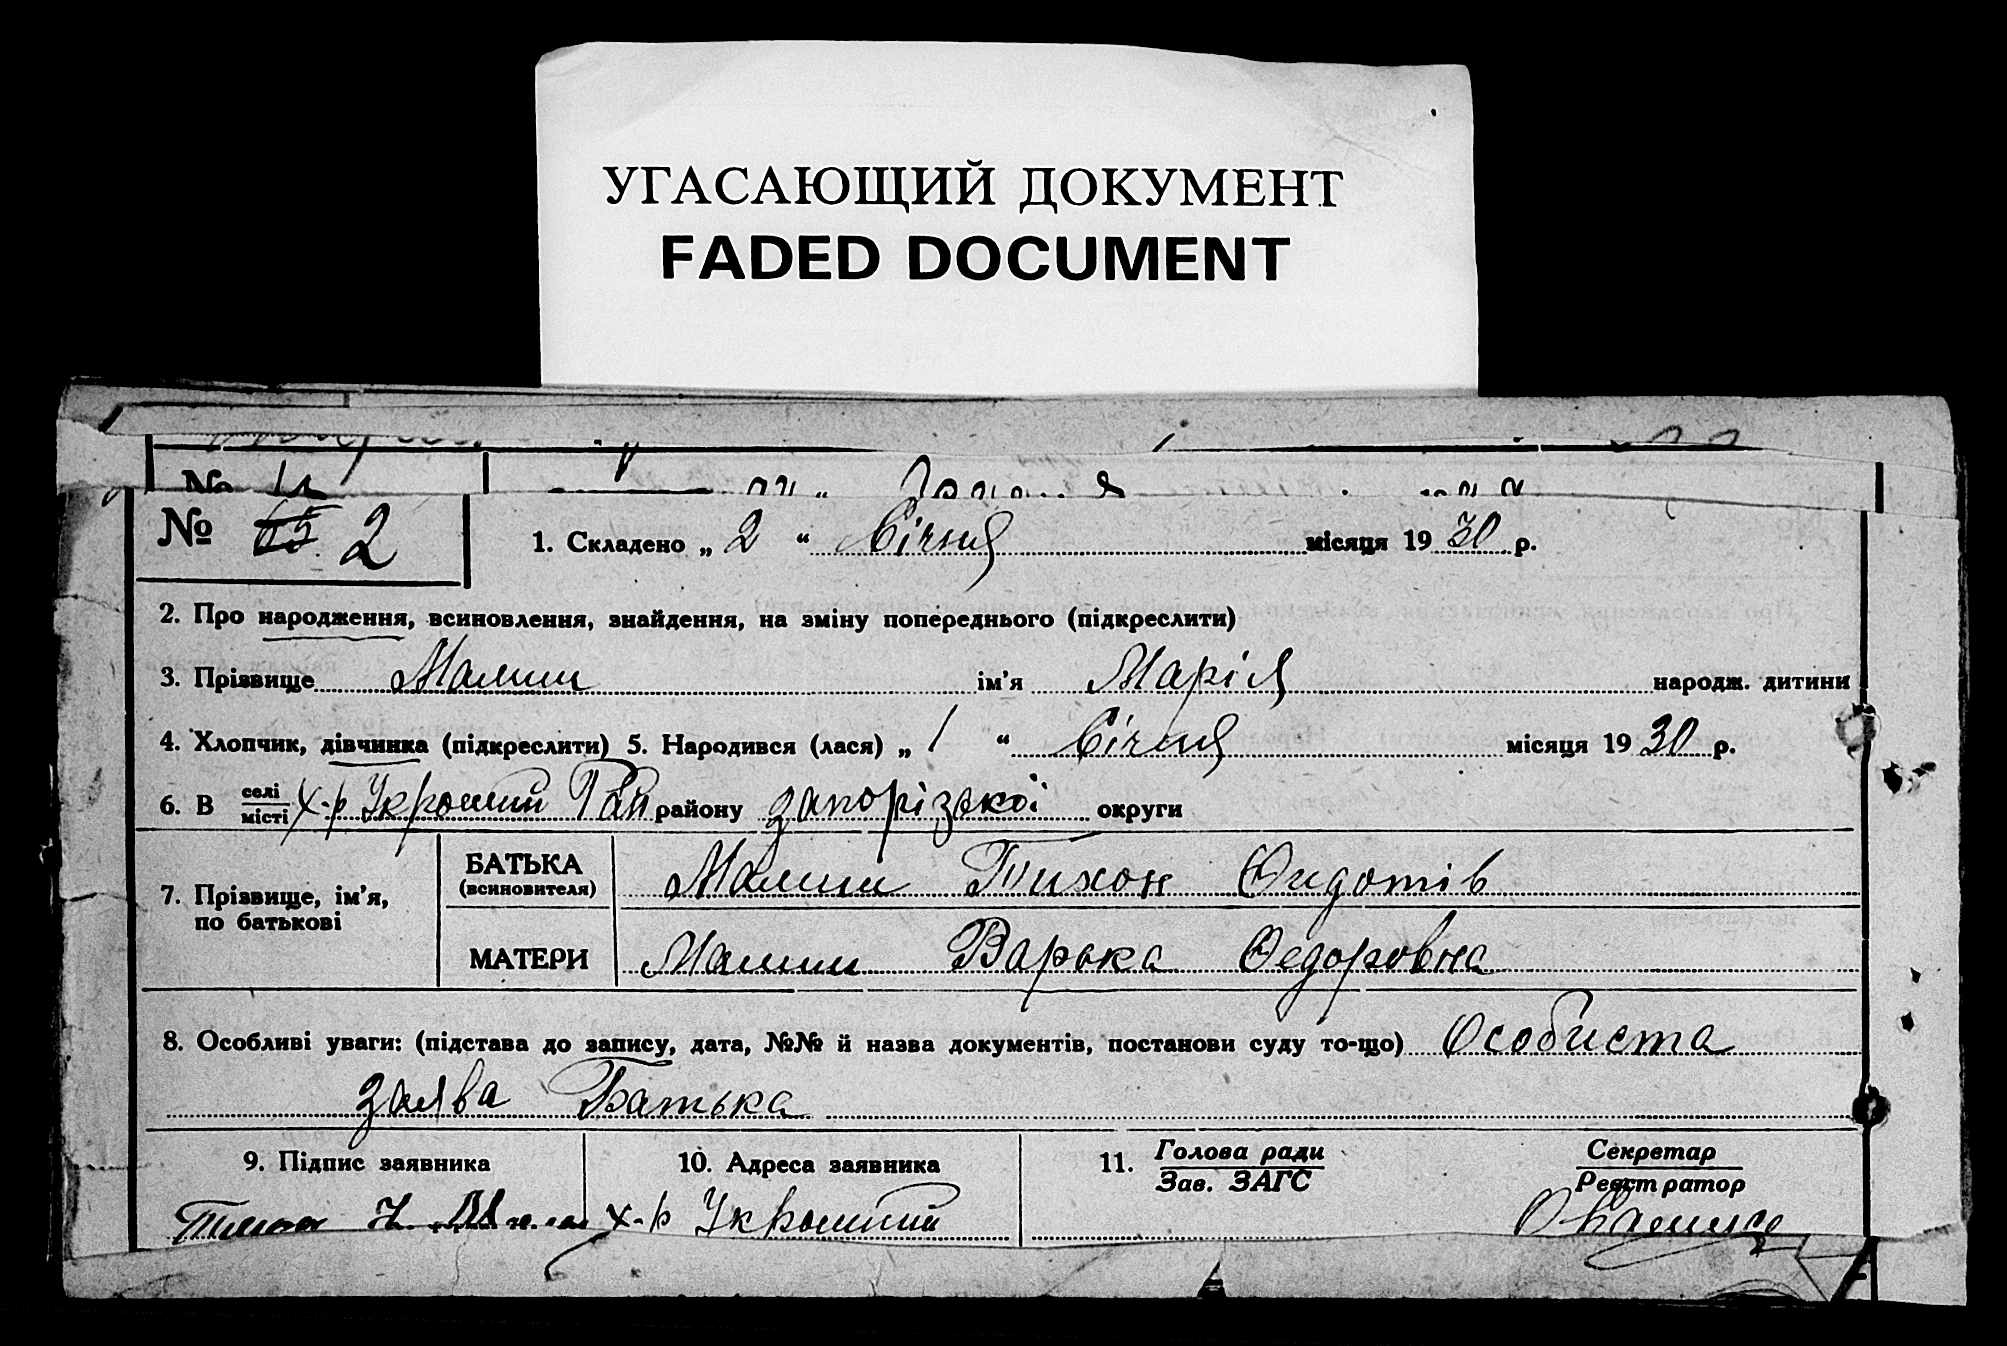 УГАСАЮЩИЙ ДОКУМЕНТ
FADED DOCUMENT
№
№ 2
1. Складено „ 2 “ Січня місяця 1930 р.
2. Про народження, всиновлення, знайдення, на зміну попереднього (підкреслити)
3. Прізвище Малиш ім’я Марія народж. дитини
4. Хлопчик, дівчинка (підкреслити) 5. Народився (лася) „ 1 “ Січня місяця 1930 р.
6. В селі місті х-р Укромний Рай району запорізької округи
7. Прізвище, ім’я, по батькові
БАТЬКА (всиновителя) Малиш Тихон Федотів
МАТЕРИ Малиш Варька Федоровна
8. Особливі уваги: (підстава до запису, дата, №№ й назва документів, постанови суду то-що) Особиста
заява Батька
9. Підпис заявника
10. Адреса заявника
х-р Укромний
11. Голова ради
Зав. ЗАГС
Секретар
Реєстратор